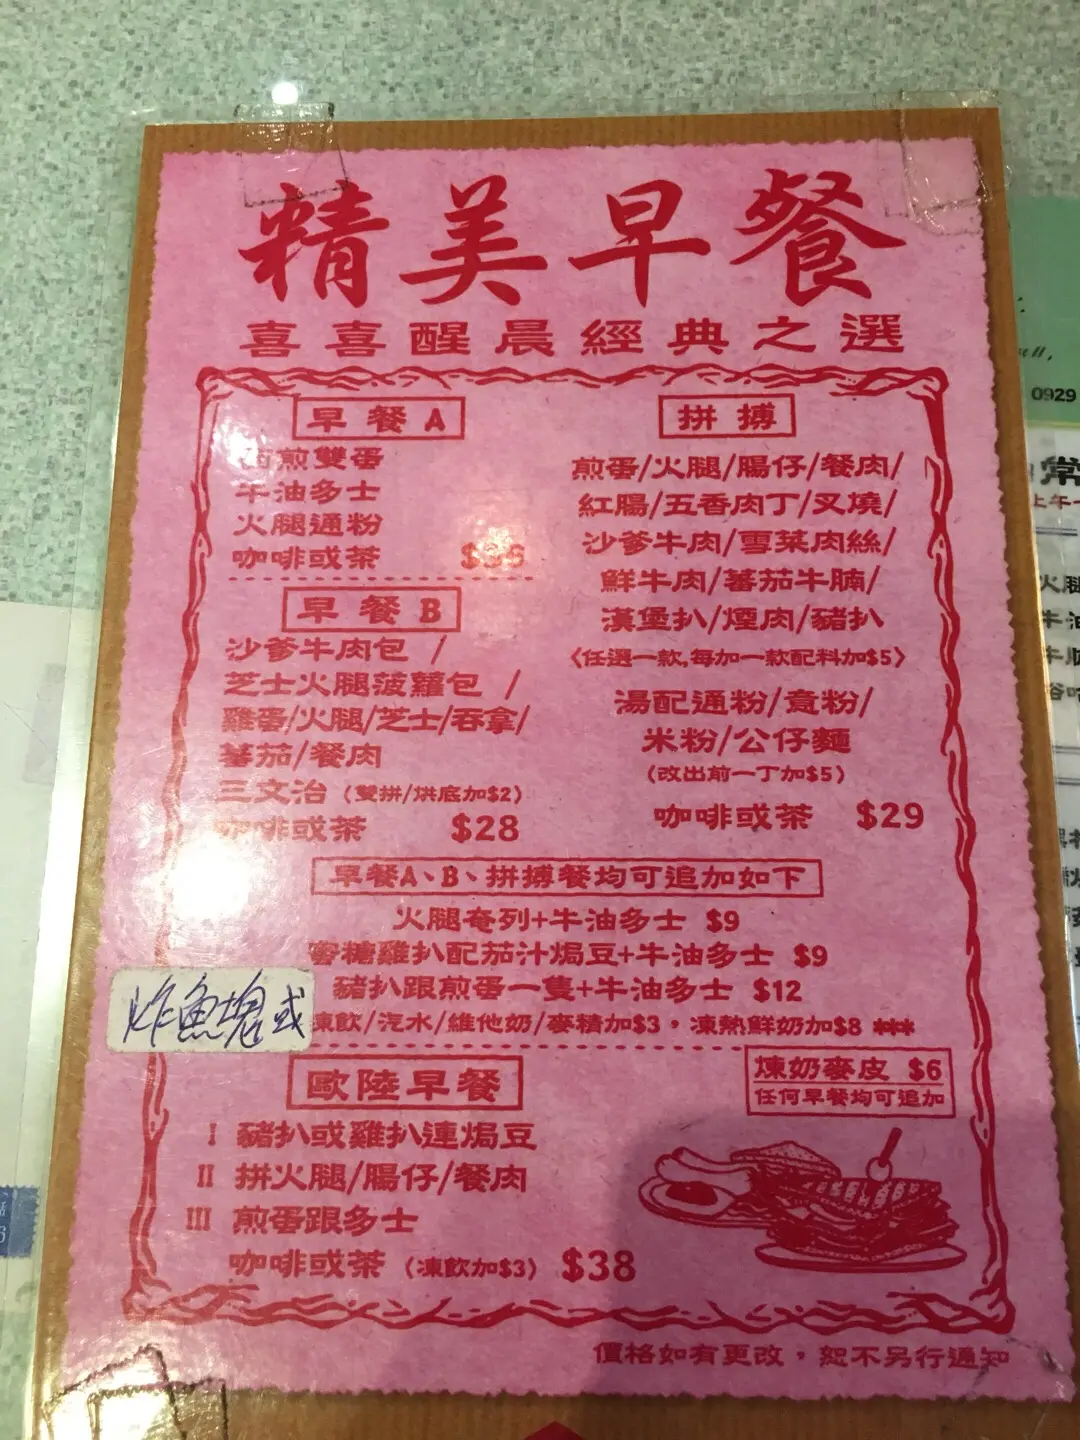 精美早餐
喜喜醒晨經典之選
早餐A
西煎雙蛋
牛油多士
火腿通粉
咖啡或茶
早餐B
沙爹牛肉包 /
芝士火腿菠蘿包 /
雞蛋/火腿/芝士/吞拿/
蕃茄/餐肉
三文治 (雙拼/烘底加$2)
咖啡或茶 $28
拼搏
煎蛋/火腿/腸仔/餐肉/
紅腸/五香肉丁/叉燒/
沙爹牛肉/雪菜肉絲/
鮮牛肉/蕃茄牛腩/
漢堡扒/煙肉/豬扒
〈任選一款,每加一款配料加$5〉
湯配通粉/意粉/
米粉/公仔麵
(改出前一丁加$5)
咖啡或茶 $29
早餐A、B、拼搏餐均可追加如下
火腿奄列+牛油多士 $9
蜜糖雞扒配茄汁焗豆+牛油多士 $9
炸魚塊或
豬扒跟煎蛋一隻+牛油多士 $12
凍飲/汽水/維他奶/麥精加$3，凍熱鮮奶加$8 ***
歐陸早餐
I 豬扒或雞扒連焗豆
II 拼火腿/腸仔/餐肉
III 煎蛋跟多士
咖啡或茶 (凍飲加$3) $38
煉奶麥皮 $6
任何早餐均可追加
價格如有更改，恕不另行通知
0929
常
上午
火腿
牛油